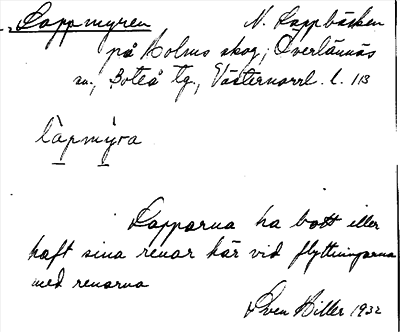 Lappmyren N. Lappbäcken
på Holms skog, Överlännäs
sn., Boteå tg., Västernorrl. l. 113
làpmýra
Lapparna ha bott eller
haft sina renar här vid flyttningarna
med renarna
Sven Hiller 1932